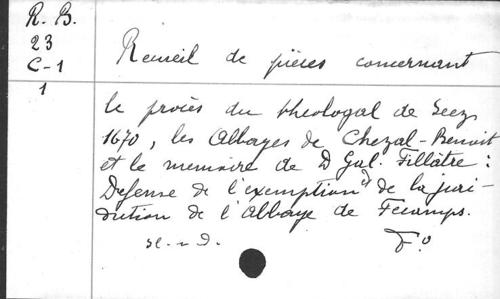 R. B.
23
C-1
1
Recueil de pièces concernant
le procès du theologal de Seez
1670, les Abbayes de Chezal-Benoit
et le memoire de D Gal. Fillatre :
Defense de l'exemption et de la juri-
diction de l'Abbaye de Fecamps.
sl. n d.
F.o